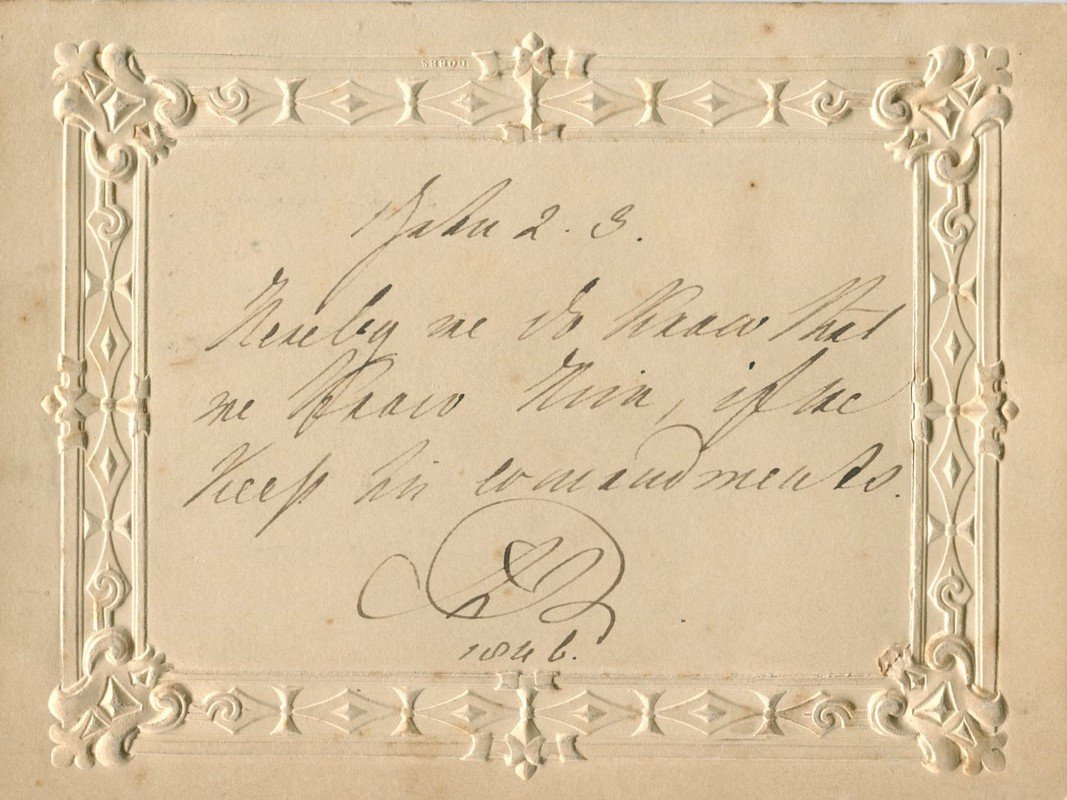 DOBBS
1 John 2. 3.
Hereby we do Know that
we Know Him, if we
Keep his comandments.
1846.